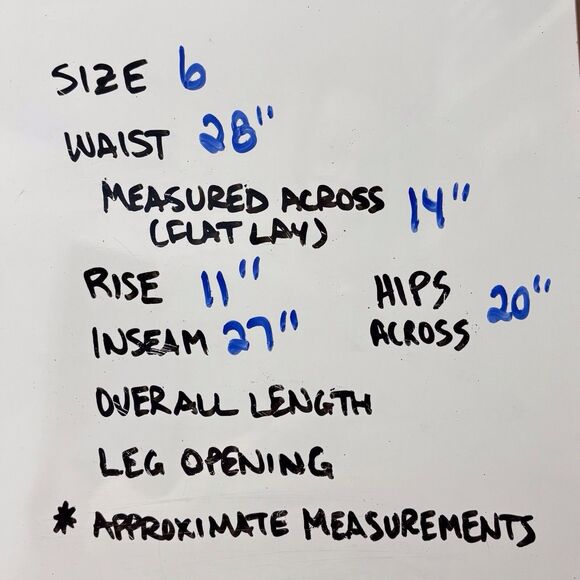 SIZE 6
WAIST 28"
MEASURED ACROSS 14"
(FLAT LAY)
RISE 11"
HIPS ACROSS 20"
INSEAM 27"
OVERALL LENGTH
LEG OPENING
* APPROXIMATE MEASUREMENTS